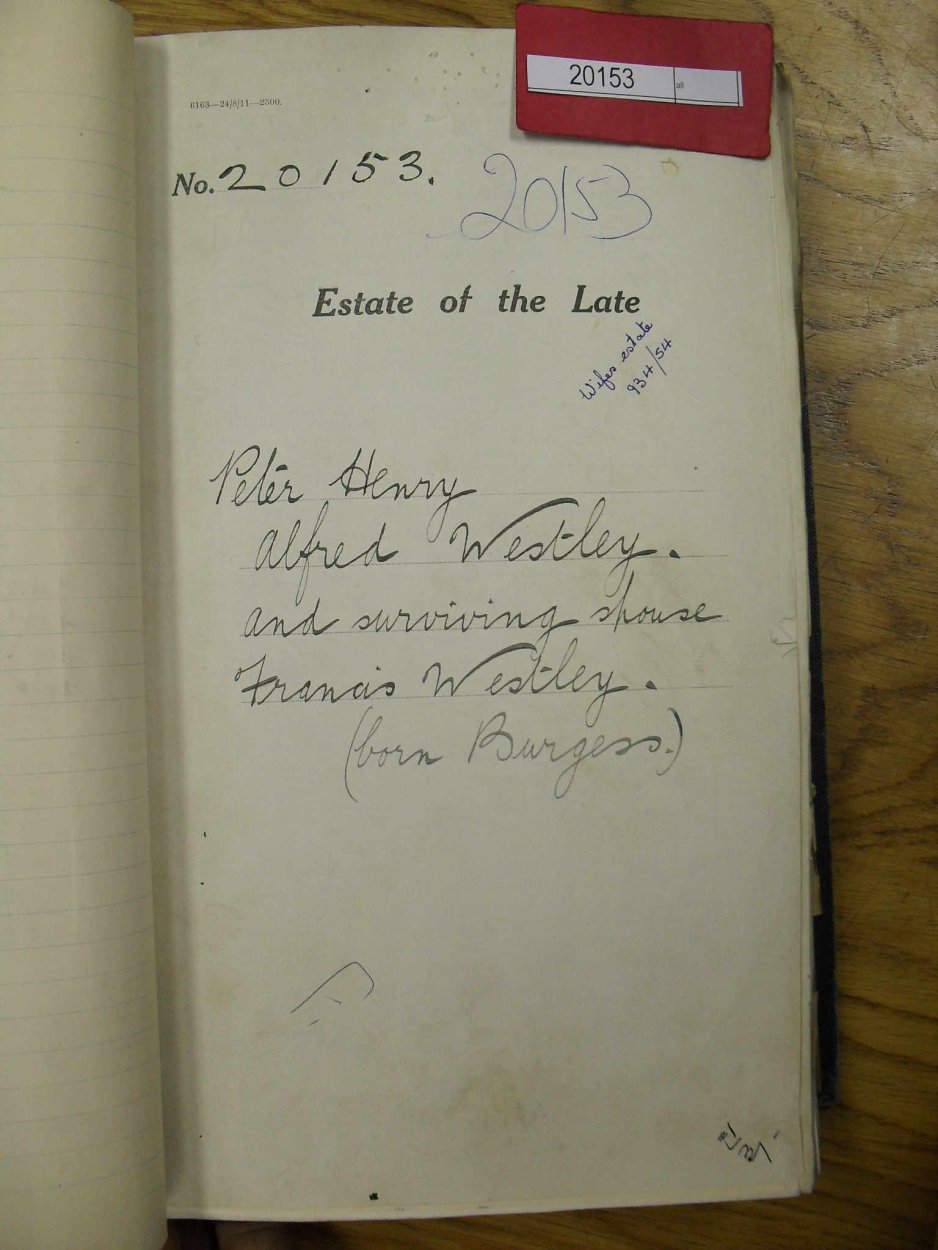 20153 all
6163—24/8/11—2500.
No. 20153.
20153
Estate of the Late
Wifes estate
934/54
Peter Henry
Alfred Westley.
and surviving spouse
Francis Westley.
(born Burgess.)